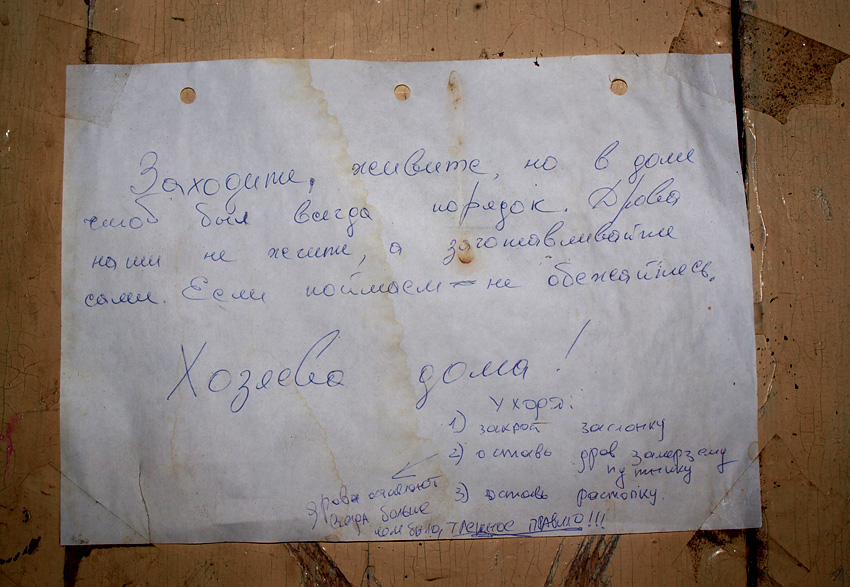 Заходите, живите, но в доме
чтоб был всегда порядок. Дрова
наши не жгите, а заготавливайте
сами. Если поймаем – не обежайтесь.
Хозяева дома!
Уходя:
1) закрой заслонку
2) оставь дров замерзшему
путнику
3) оставь растопку.
Дрова оставляют
всегда больше
чем было, таежное правило!!!